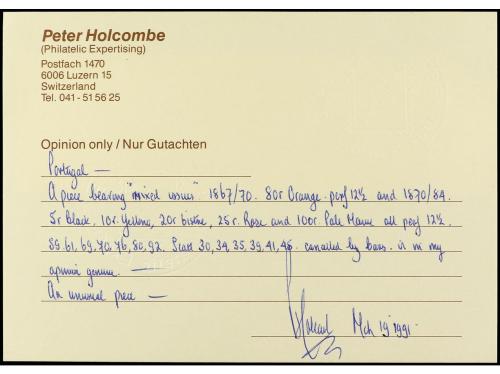 Peter Holcombe
(Philatelic Expertising)
Postfach 1470
6006 Luzern 15
Switzerland
Tel. 041 - 51 56 25
Opinion only / Nur Gutachten
Portugal —
A piece bearing "mixed issues" 1867/70. 80r Orange perf 12½ and 1870/84.
5r Black, 10r Yellow, 20r bistre, 25r Rose and 100r Pale Mauve all perf 12½,
59, 61, 69, 70, 76, 80, 92. Scott 30, 34, 35, 39, 41, 46. cancelled by bars. is in my
opinion genuine. —
An unusual piece —
Holcombe Mch 19 1991.